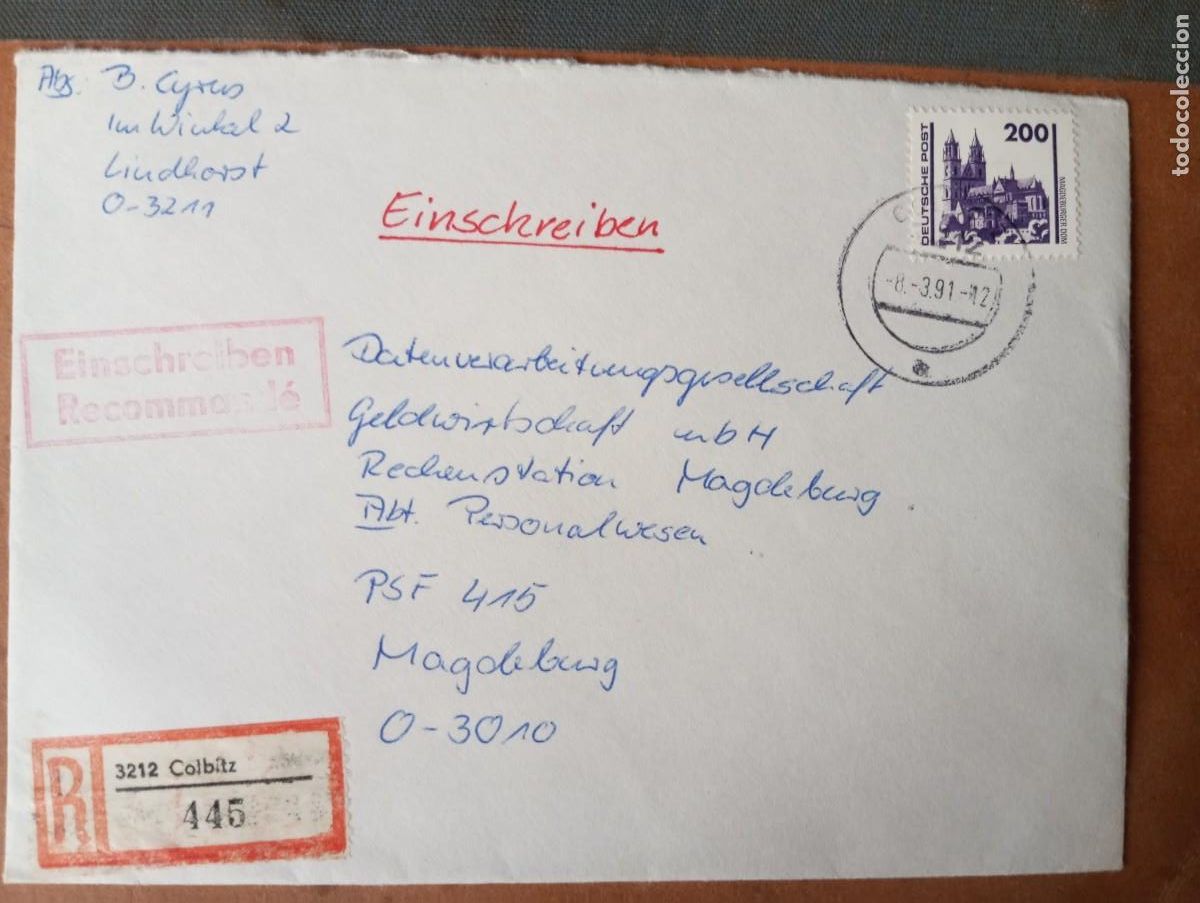 Abs. B. Cyrus
Im Winkel 2
Lindhorst
O-3211
Einschreiben
200
DEUTSCHE POST
MAGDEBURGER DOM
-8.-3.91-12
a
Einschreiben
Recommandé
Datenverarbeitungsgesellschaft
Geldwirtschaft mbH
Rechenstation Magdeburg
Abt. Personalwesen
PSF 415
Magdeburg
O-3010
R
3212 Colbitz
445
todocoleccion